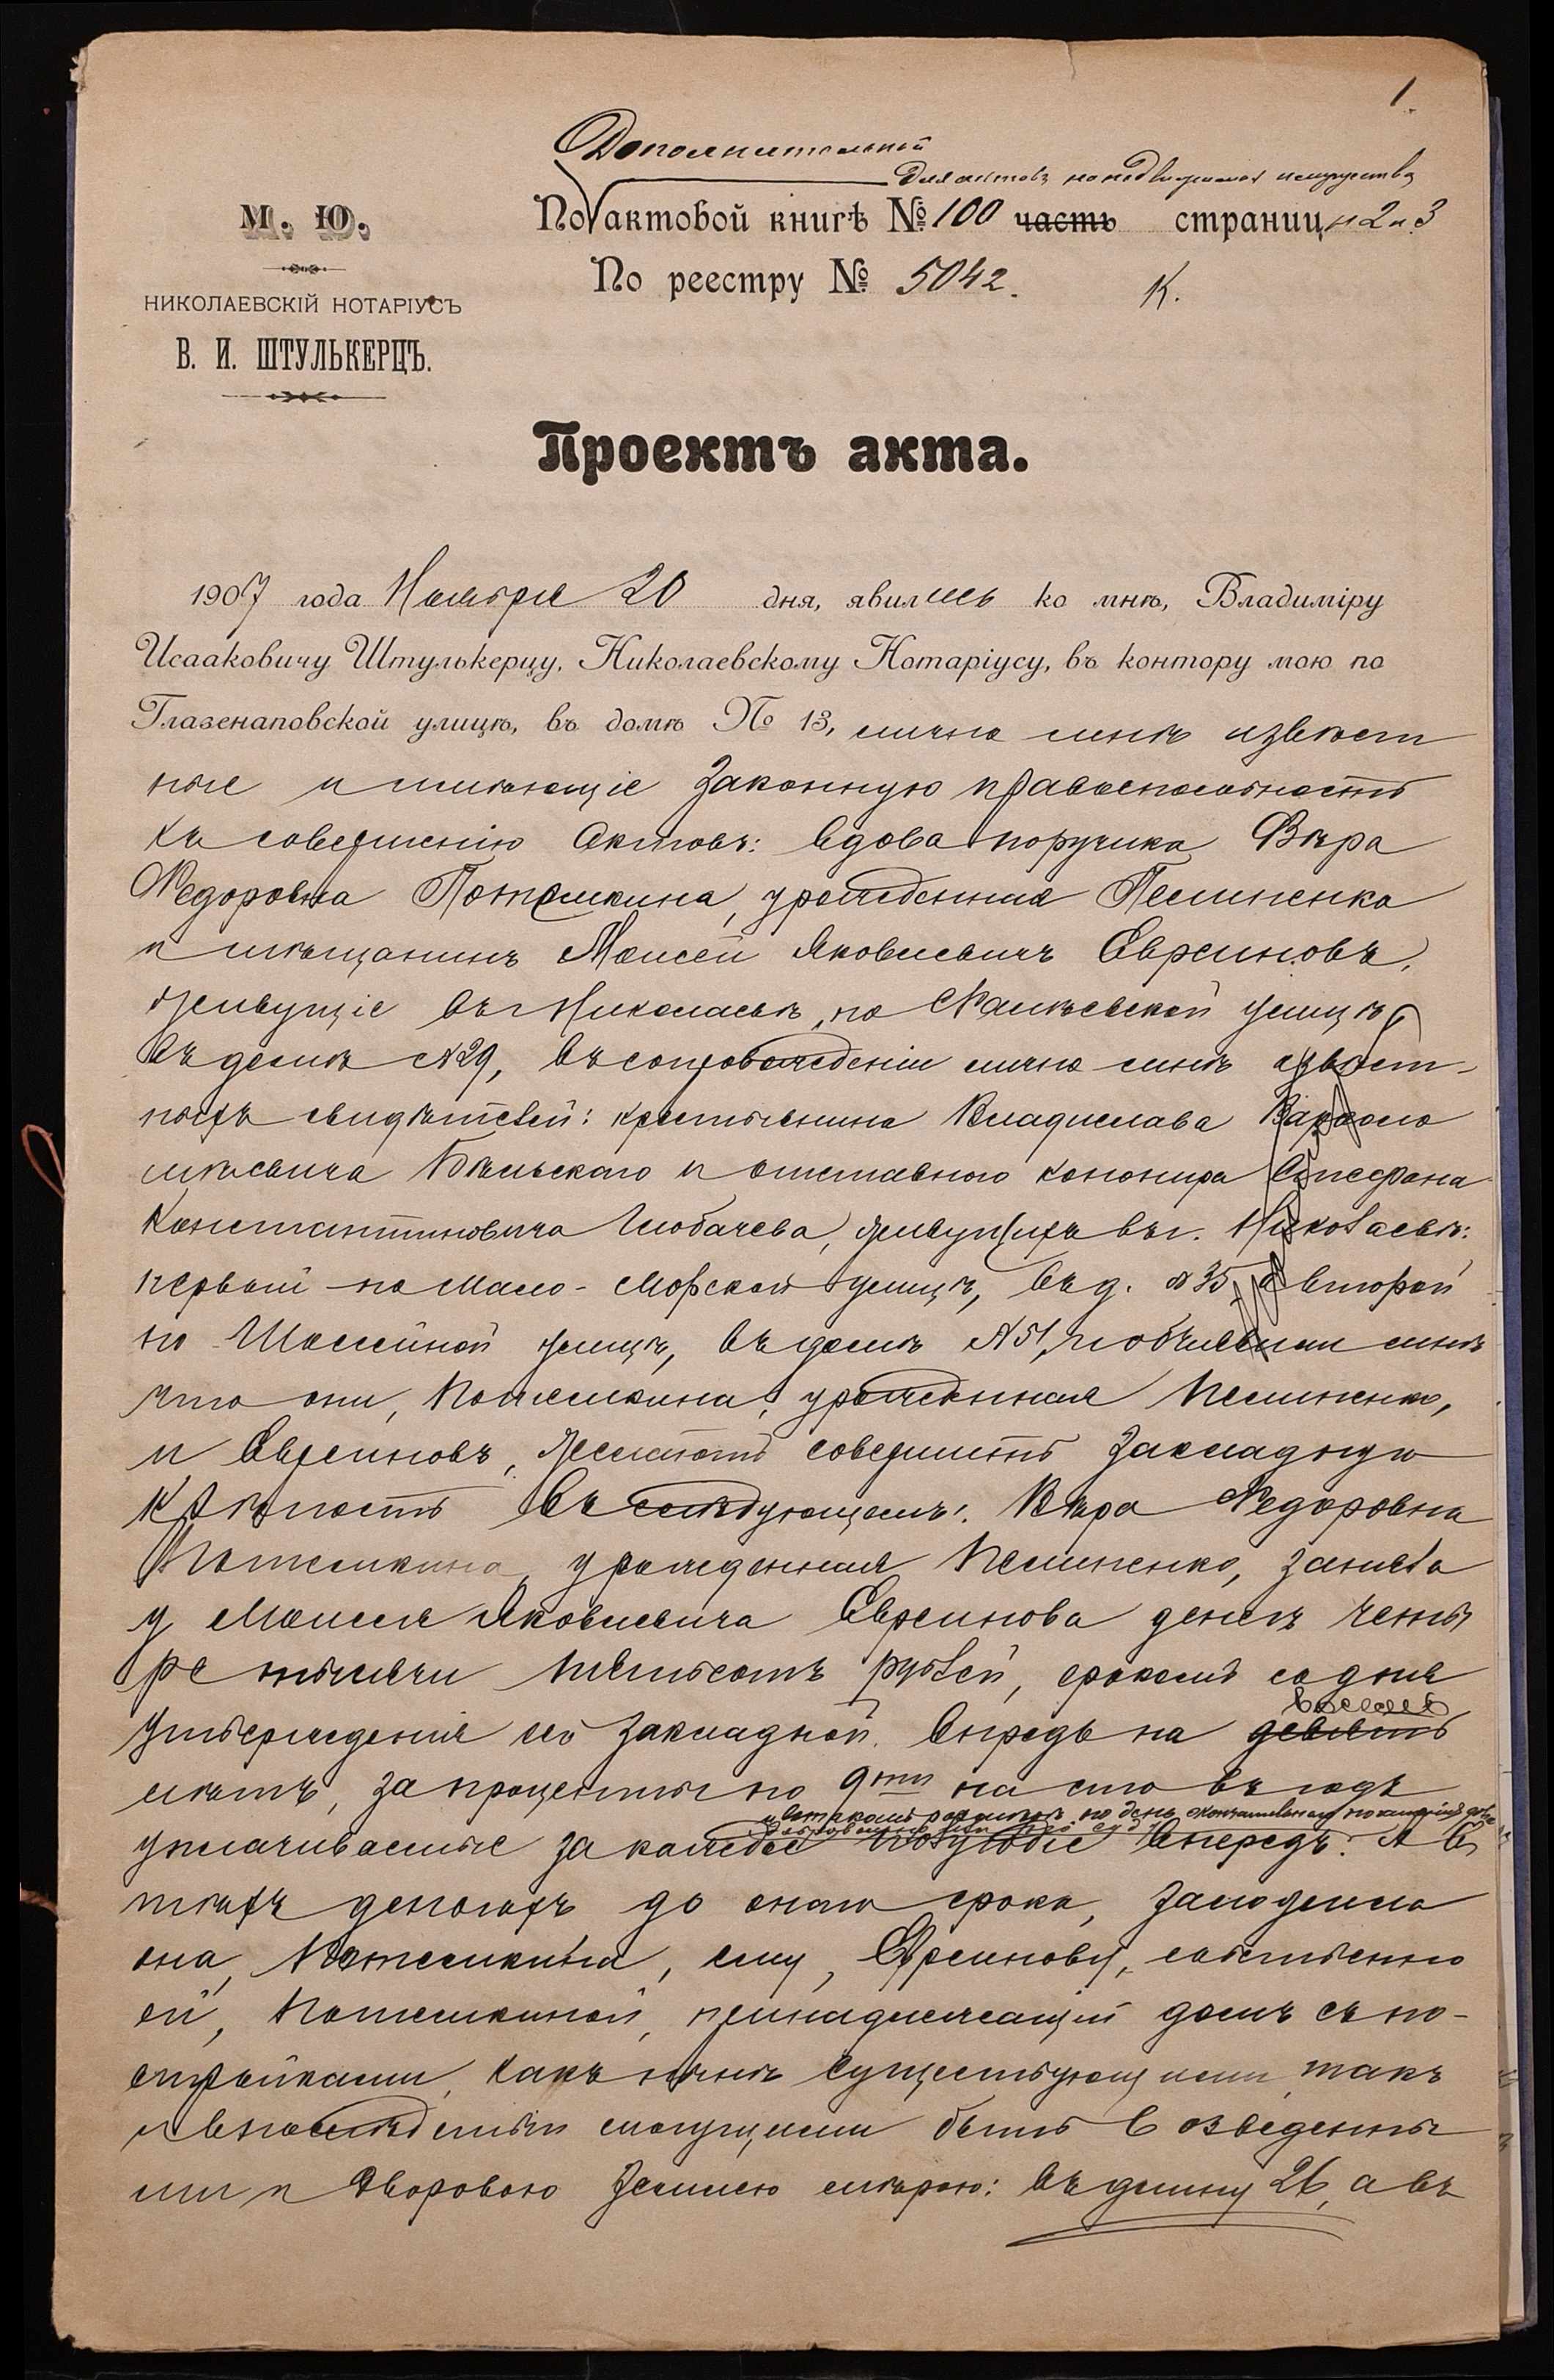 1.
Дополнительной
для актовъ на недвижимыя имущества
М. Ю.
По актовой книгѣ № 100 часть страниц 2 и 3
По реестру № 5042. К.
НИКОЛАЕВСКІЙ НОТАРІУСЪ
В. И. ШТУЛЬКЕРЦЪ.
Проектъ акта.
1907 года Ноября 20 дня, явились ко мнѣ, Владиміру
Исааковичу Штулькерцу, Николаевскому Нотаріусу, въ контору мою по
Глазенаповской улицѣ, въ домѣ № 13, лично мнѣ извѣст
ные и имѣющіе законную правоспособность
къ совершенію актовъ: вдова поручика Вѣра
Федоровна Потемкина, урожденная Пелипенко
и мѣщанинъ Моисей Яковлевичъ Евреиновъ,
живущіе въ г. Николаевѣ, по улицѣ,
въ домѣ № 29, въ сопровожденіи лично мнѣ извѣст-
ныхъ свидѣтелей: крестьянина Владислава Варфоло
мѣевича Бѣльскаго и отставного канонира Стефана
Константиновича Любачева, живущихъ въ г. Николаевѣ:
первый по Мало-Морской улицѣ, въ д. № 35, а второй
по Шоссейной улицѣ, въ домѣ № 51, и объявили мнѣ
что они, Потемкина, урожденная Пелипенко,
и Евреиновъ, желаютъ совершить закладную
крѣпость въ слѣдующемъ: Вѣра Федоровна
Потемкина, урожденная Пелипенко, заняла
у Моисея Яковлевича Евреинова денегъ четы
ре тысячи пятьсотъ рублей, срокомъ со дня
восемь
утвержденія сей закладной впредь на девять
лѣтъ, за проценты по 9ти на сто въ годъ
и въ такомъ размѣрѣ по день окончательнаго
уплачиваемые за каждое полугодіе впередъ. А въ
тѣхъ деньгахъ до онаго срока, заложила
она, Потемкина, ему, Евреинову, собственно
ей, Потемкиной, принадлежащій домъ съ по-
стройками, какъ нынѣ существующими, такъ
и впослѣдствіи могущими быть возведенны
ми и дворовою землею мѣрою: въ длину 26, а въ